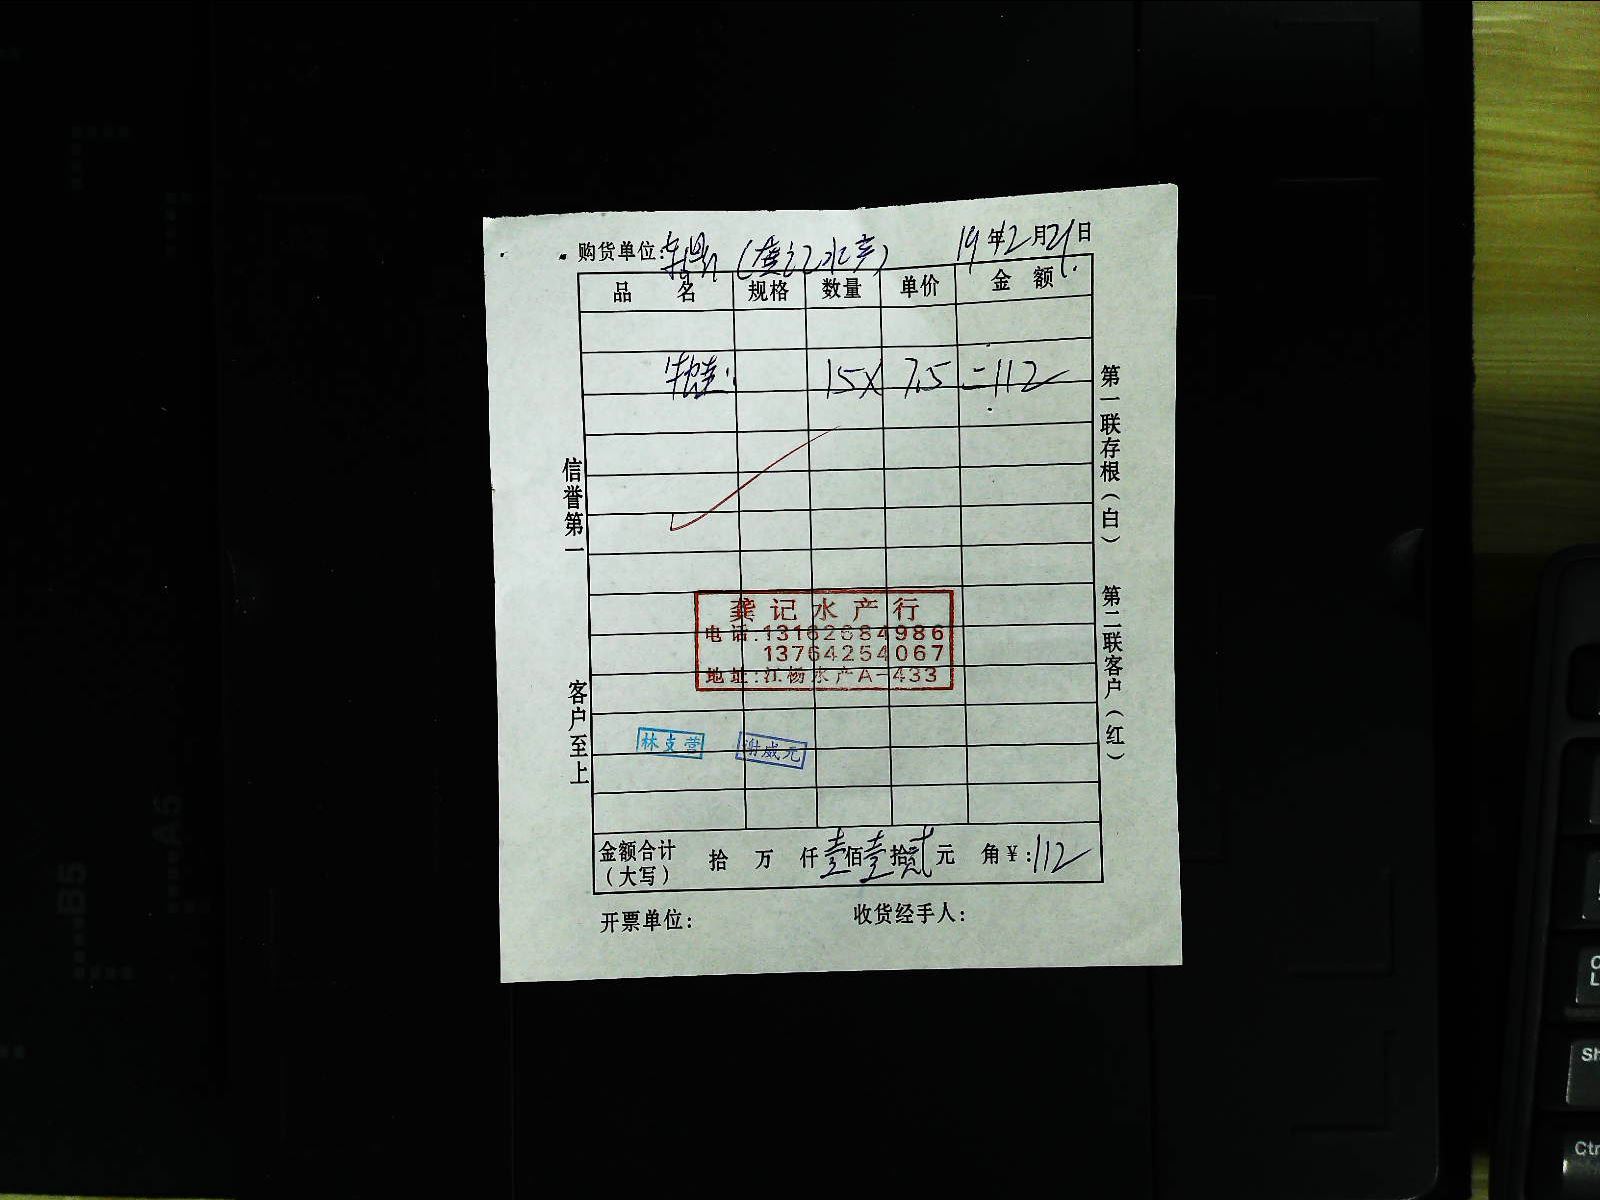 购货单位: (龚记水产) 19年2月21日
品 名 规格 数量 单价 金 额
牛蛙 15X 7.5 =112
信誉第一 客户至上
第一联存根(白) 第二联客户(红)
龚记水产行
电话:13162684986
13764254067
地址:江杨水产A-433
林支营 谢威元
金额合计(大写) 拾 万 仟壹佰壹拾贰元 角¥:112
开票单位: 收货经手人:
B5
A5